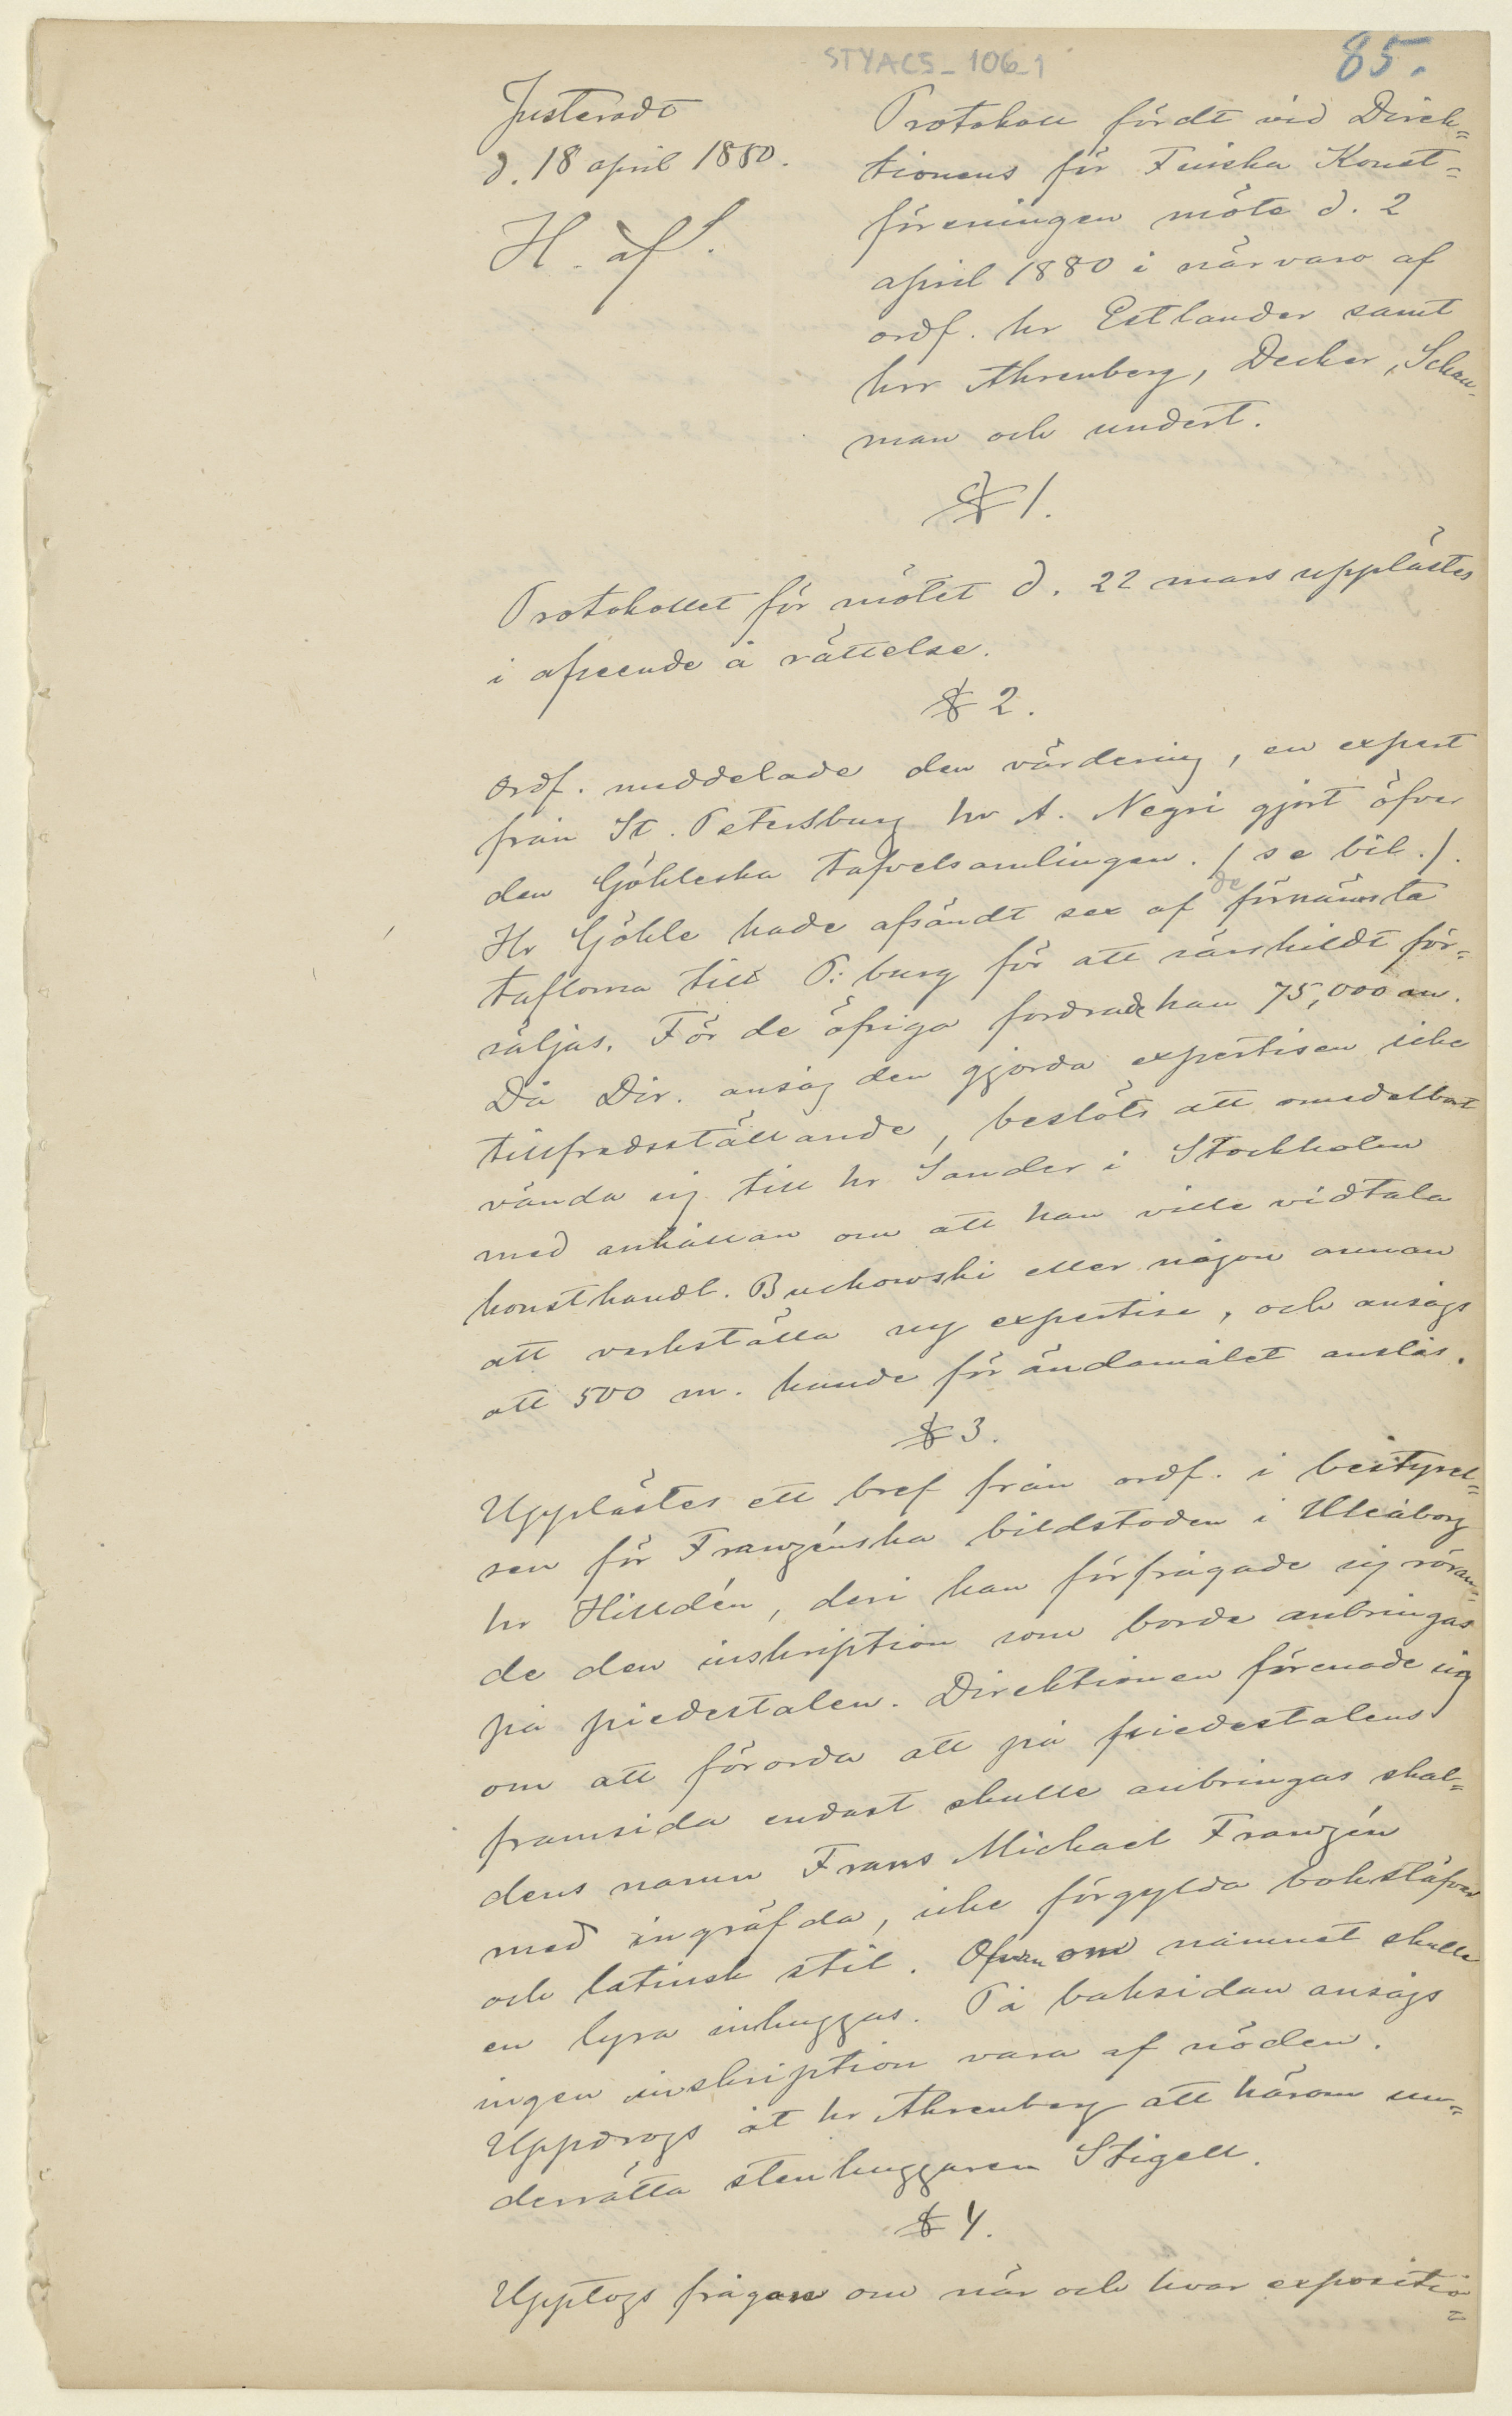 STYACS_106_1
85.
Justeradt
d. 18 april 1880.
H. af S.
Protokoll fördt vid Direk=
tionens för Finska Konst=
föreningen möte d. 2
april 1880 i närvaro af
ordf. hr Estlander samt
hrr Ahrenberg, Decker, Schau-
man och undert.
§ 1.
Protokollet för mötet d. 22 mars upplästes
i afseende å rättelse.
§ 2.
Ordf. meddelade den värdering, en expert
från St. Petersburg hr A. Negri gjort öfver
den Göhleska tafvelsamlingen. (se bil.).
Hr Göhle hade afsändt sex af de förnämsta
taflorna till P:burg för att särskildt för=
säljas. För de öfriga fordrade han 75,000 m.
Då Dir. ansåg den gjorda expertisen icke
tillfredsställande, beslöts att omedelbart
vända sig till hr Sander i Stockholm
med anhållan om att han ville vidtala
konsthandl. Buchowski eller någon annan
att verkställa ny expertise, och ansågs
att 500 m. kunde för ändamålet anslås.
§ 3.
Upplästes ett bref från ordf. i bestyrel=
sen för Franzénska bildstoden i Uleåborg
hr Hilldén, deri han förfrågade sig röran=
de den inskription som borde anbringas
på piedestalen. Direktionen förenade sig
om att förorda att på piedestalens
framsida endast skulle anbringas skal=
dens namn Frans Michael Franzén
med ingräfda, icke förgylda bokstäfver
och latinsk stil. Ofvanom namnet skulle
en lyra inhuggas. På baksidan ansågs
ingen inskription vara af nöden.
Uppdrogs åt hr Ahrenberg att härom un=
derrätta stenhuggaren Stigell.
§ 4.
Upptogs frågan om när och hvar expositio=